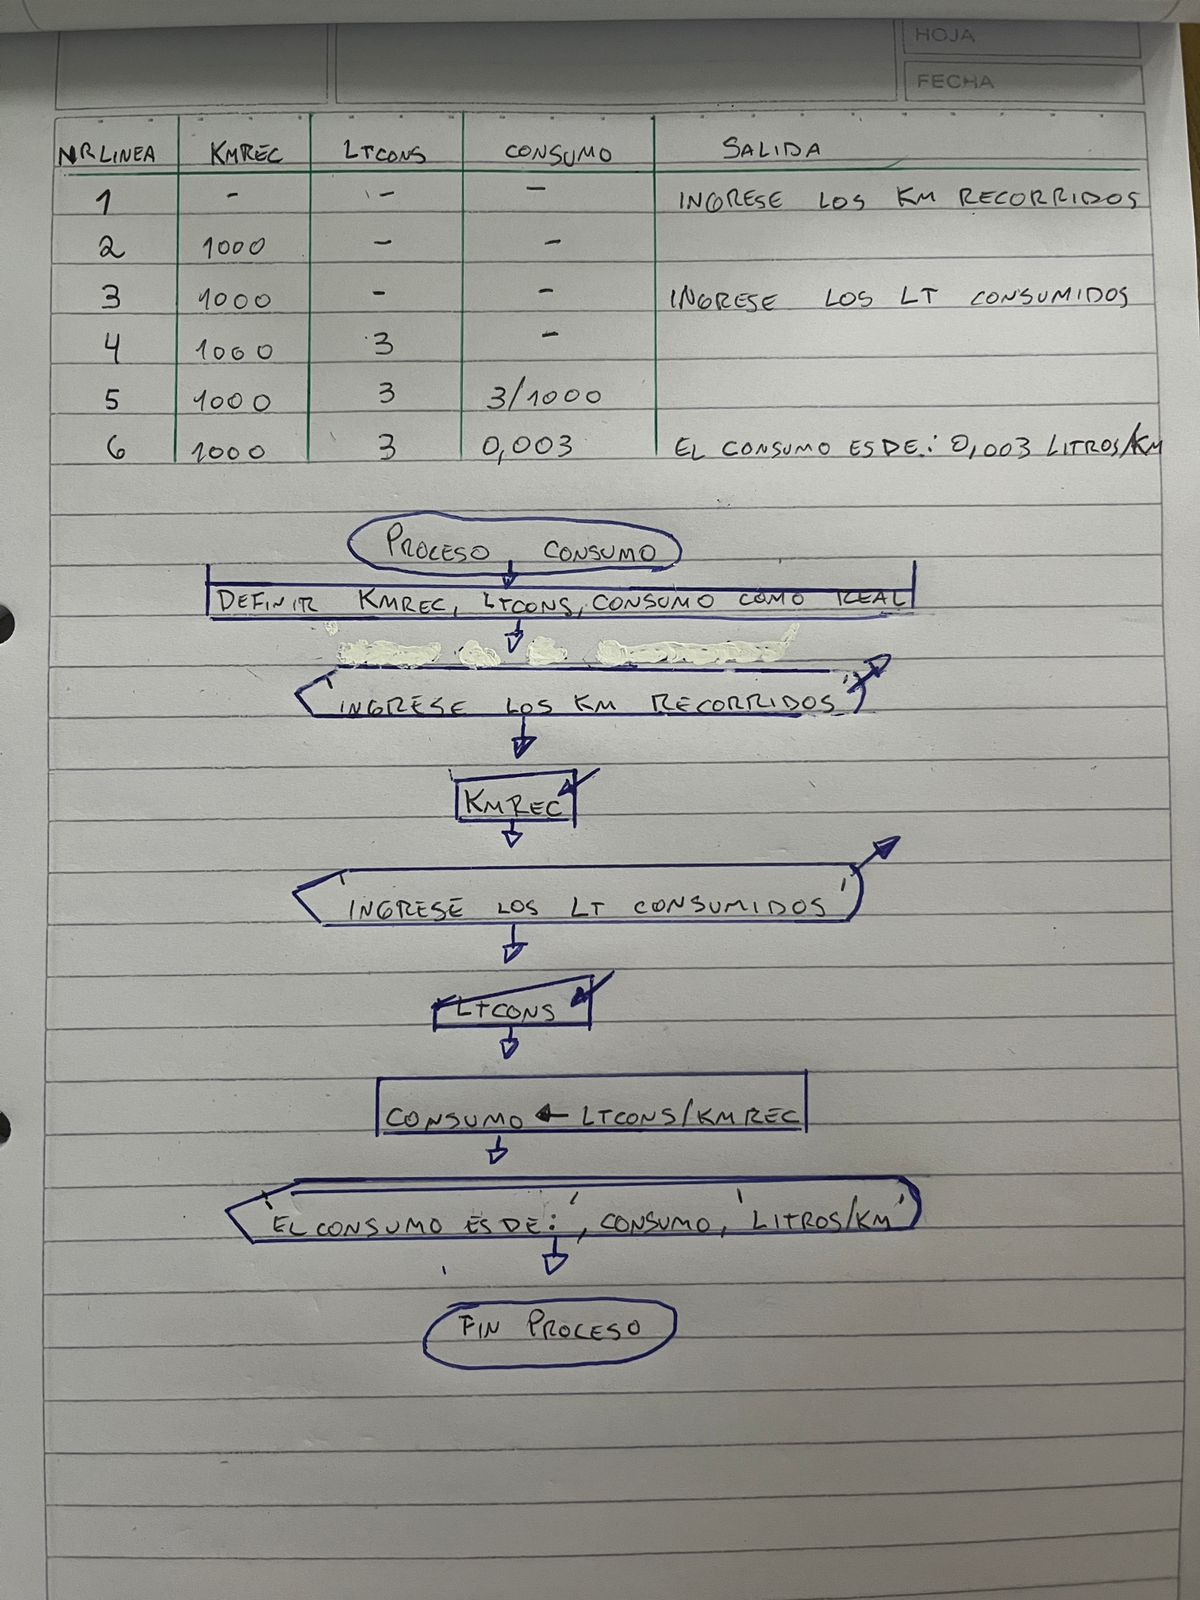 HOJA
FECHA
NR LINEA KMREC LTCONS CONSUMO SALIDA
1 - - - INGRESE LOS KM RECORRIDOS
2 1000 - -
3 1000 - - INGRESE LOS LT CONSUMIDOS
4 1000 3 -
5 1000 3 3/1000
6 1000 3 0,003 EL CONSUMO ES DE: 0,003 LITROS/KM
PROCESO CONSUMO
DEFINIR KMREC, LTCONS, CONSUMO COMO REAL
'INGRESE LOS KM RECORRIDOS'
KMREC
'INGRESE LOS LT CONSUMIDOS'
LTCONS
CONSUMO ← LTCONS/KMREC
'EL CONSUMO ES DE:', CONSUMO, 'LITROS/KM'
FIN PROCESO